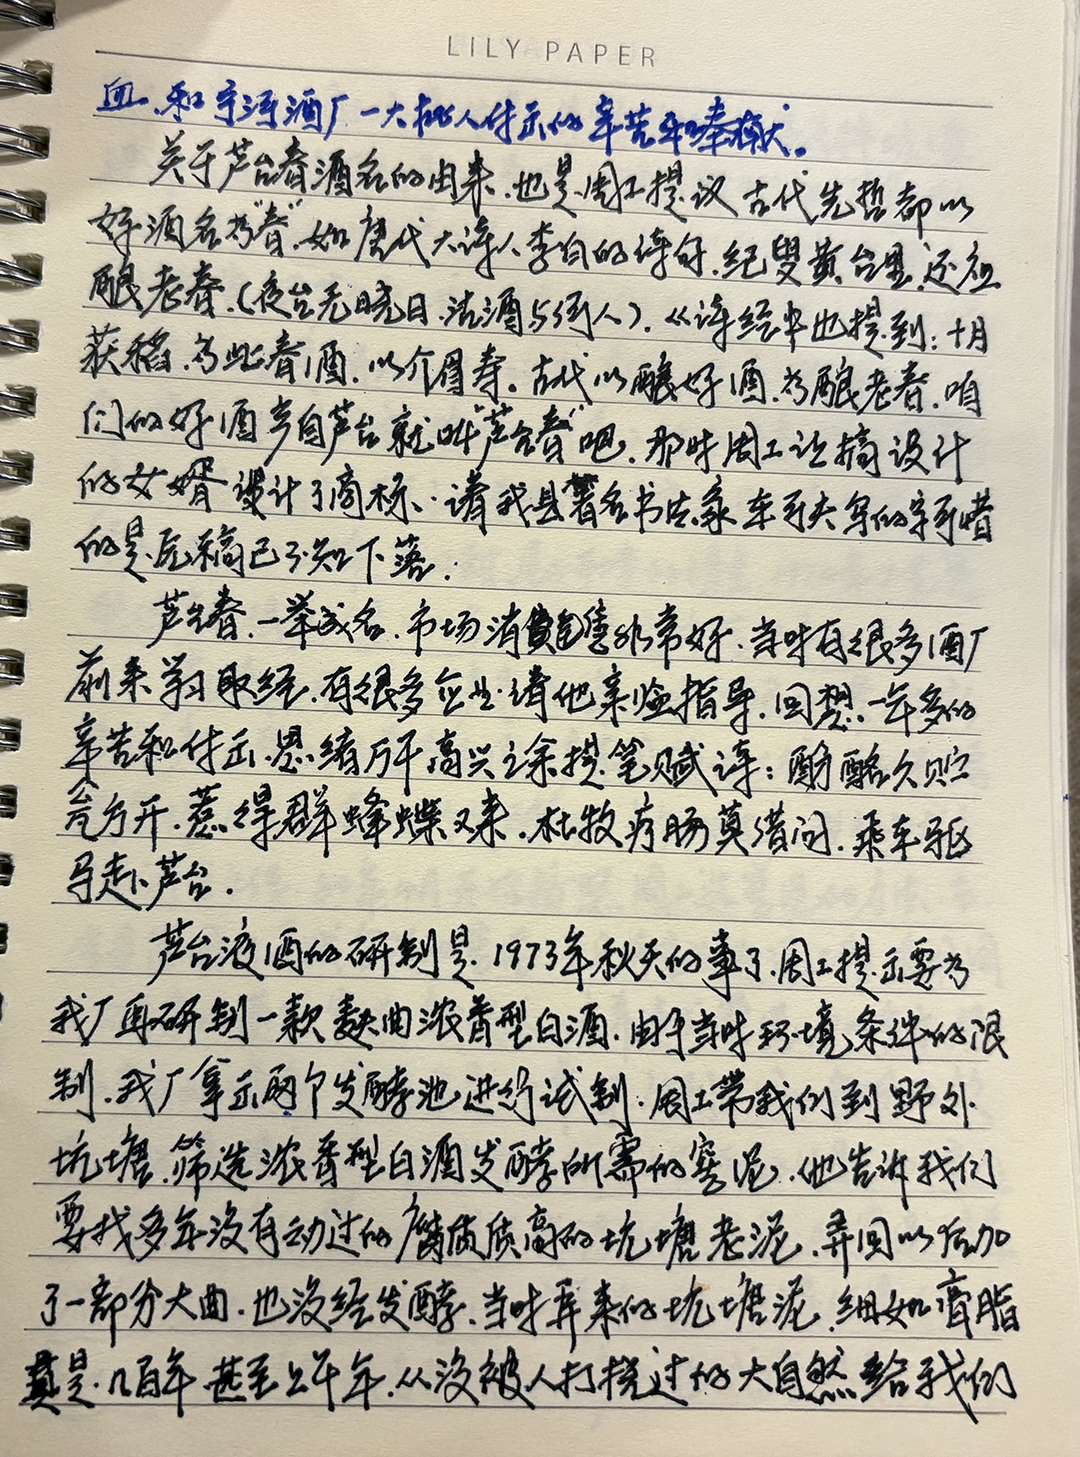 LILY PAPER
血、和宁河酒厂一大批人付出的辛苦和奉献。
关于芦台春酒名的由来、也是周工提议古代先哲都以
好酒名为"春"、如唐代大诗人李白的诗句、纪叟黄台里、还应
酿老春、(夜台无晓日、沽酒与何人)、从诗经中也提到:十月
获稻、为此春酒、以介眉寿。古代以酿好酒、为酿老春、咱
们的好酒产自芦台就叫"芦台春"吧、那时周工让搞设计
的女婿设计了商标、请我县著名书法家车子夫写的字可惜
的是、原稿已不知下落;
芦台春、一举成名、市场消费自信非常好、当时有很多酒厂
前来学习取经、有很多企业请他亲临指导、回想一年多的
辛苦和付出、思绪万千高兴之余提笔赋诗:酒酩久贮
瓮方开、惹得群蜂蝶又来、杜牧疗肠莫借问、乘车驱
马走芦台.
芦台液酒的研制是、1973年秋天的事了、周工提出要为
我厂再研制一款麸曲浓香型白酒、由于当时环境条件的限
制、我厂拿出两个发酵池进行试制、周工带我们到野外
坑塘、筛选浓香型白酒发酵所需的窖泥、他告诉我们
要找多年没有动过的腐殖质高的坑塘老泥、弄回以后加
了一部分大曲、也没经发酵、当时弄来的坑塘泥、细如膏脂
真是、几百年甚至上千年、从没被人打搅过的大自然给我们